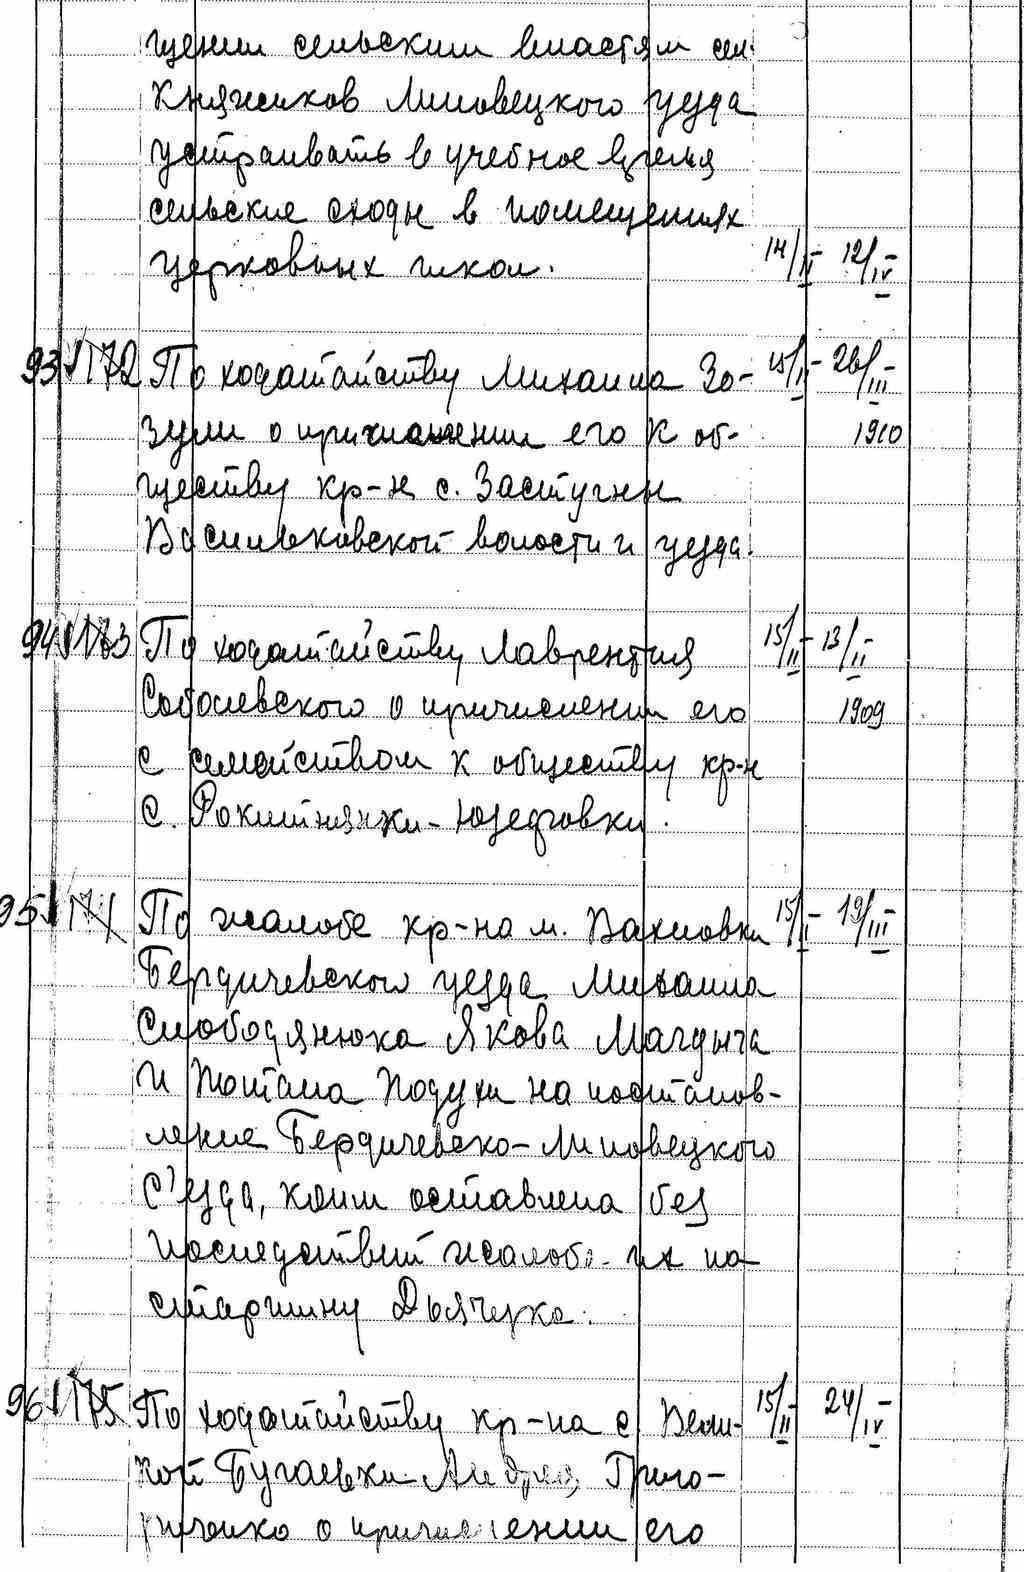 щении сельским властям сел.
Княжиков Липовецкого уезда
устраивать в учебное время
сельские сходы в помещениях
церковных школ. 14/II- 12/IV-
93 172 По ходатайству Михаила Зо- 15/II- 26/III-
зули о причислении его к об- 1910
ществу кр-н с. Застугны
Васильковской волости и уезда.
94 173 По ходатайству Лаврентия 15/II- 13/II-
Соболевского о причислении его 1909
с семейством к обществу кр-н
с. Рокитнянки-Юзефовки.
95 174 По жалобе кр-на м. Вахновки 15/II- 19/III-
Бердичевского уезда Михаила
Слободянюка Якова Магдыча
и Потапа Подухи на постанов-
ление Бердичевско-Липовецкого
с'езда, коим оставлена без
последствий жалоба их на
старшину
96 175 По ходатайству кр-на с. Вели- 15/II- 24/IV-
кой Бугаевки Андрея Григо-
о причислении его